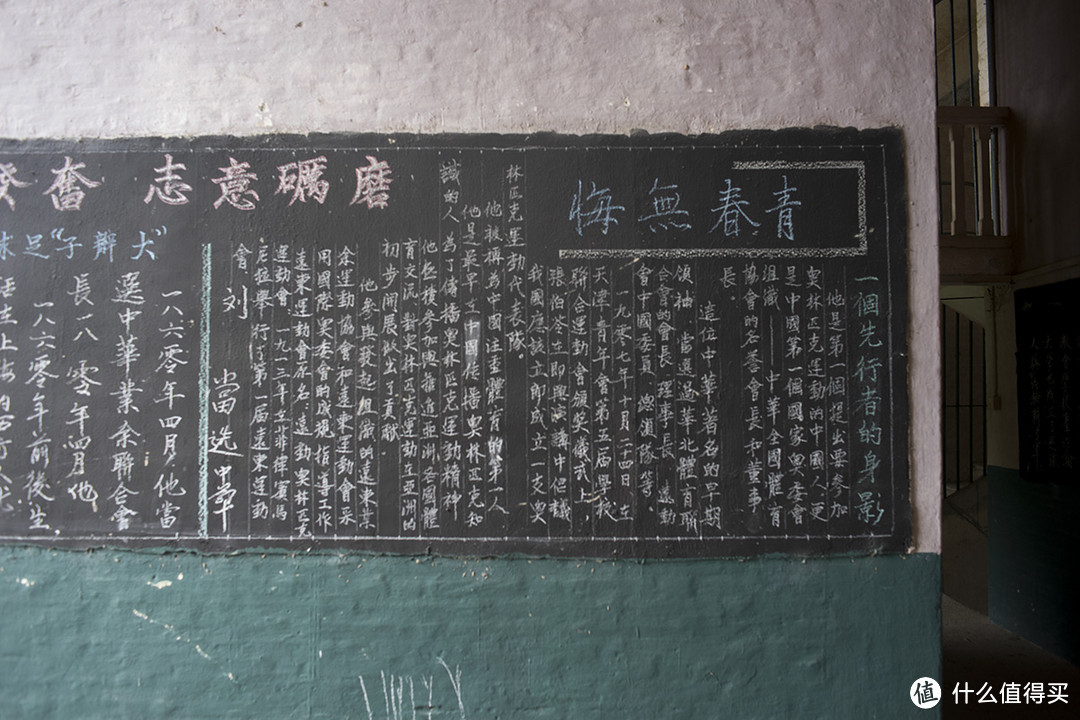 青春無悔
一個先行者的身影
他是第一個提出要參加
奧林匹克運動的中國人、更
是中國第一個國家奧委會
組織——中華全國體育
協會的名譽會長和董事
長。
這位中華著名的早期
領袖,當選過華北體育聯
合會的會長、理事長、遠動
會中國委員、總領隊等。
一九零七年十月二十四日、在
天津青年會第五届學校
聯合運動會頒獎儀式上,
張伯苓生即興演講中但議
我國應該立即成立一支奧
林匹克運動代表隊。
他被稱為中國注重體育的第一人
他是最早在中國傳播奧林匹克知
識的人、為了傳播奧林匹克運動精神
他極積參加與推進亞洲各國體
育交流、對奧林匹克運動在亞洲的
初步開展做出了貢献。
他參與發起組織的遠東業
余運動協會和遠東運動會采
用國際奧委會的成規,指導工作
遠東運動會原名:遠動奧林匹克
運動會、一九一三年在菲律賓馬
尼拉舉行了第一届遠東運動
會
刘 當选中華
磨礪意志 奮
犬"辮子"足球
一八六零年四月,他當
選中華業余聯合會
長一八 零年四月他
一八六零年前後生,
什么值得买